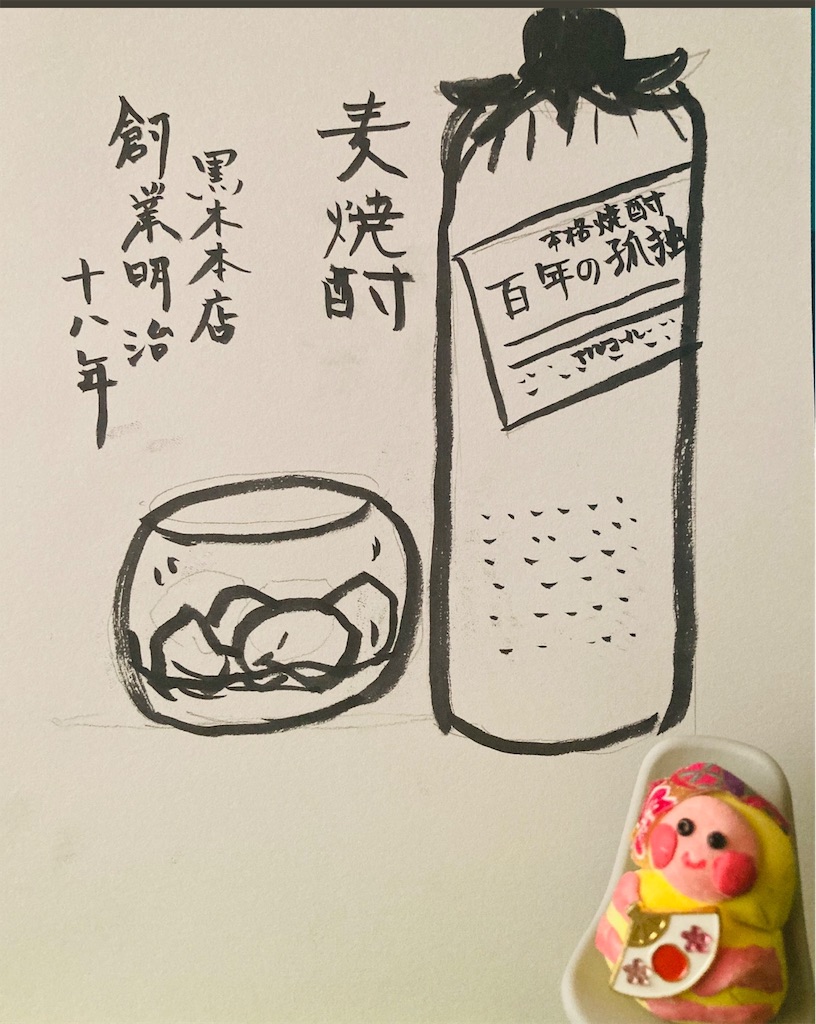 麦焼酎
黒木本店
創業明治
十八年
本格焼酎
百年の孤独
アルコール